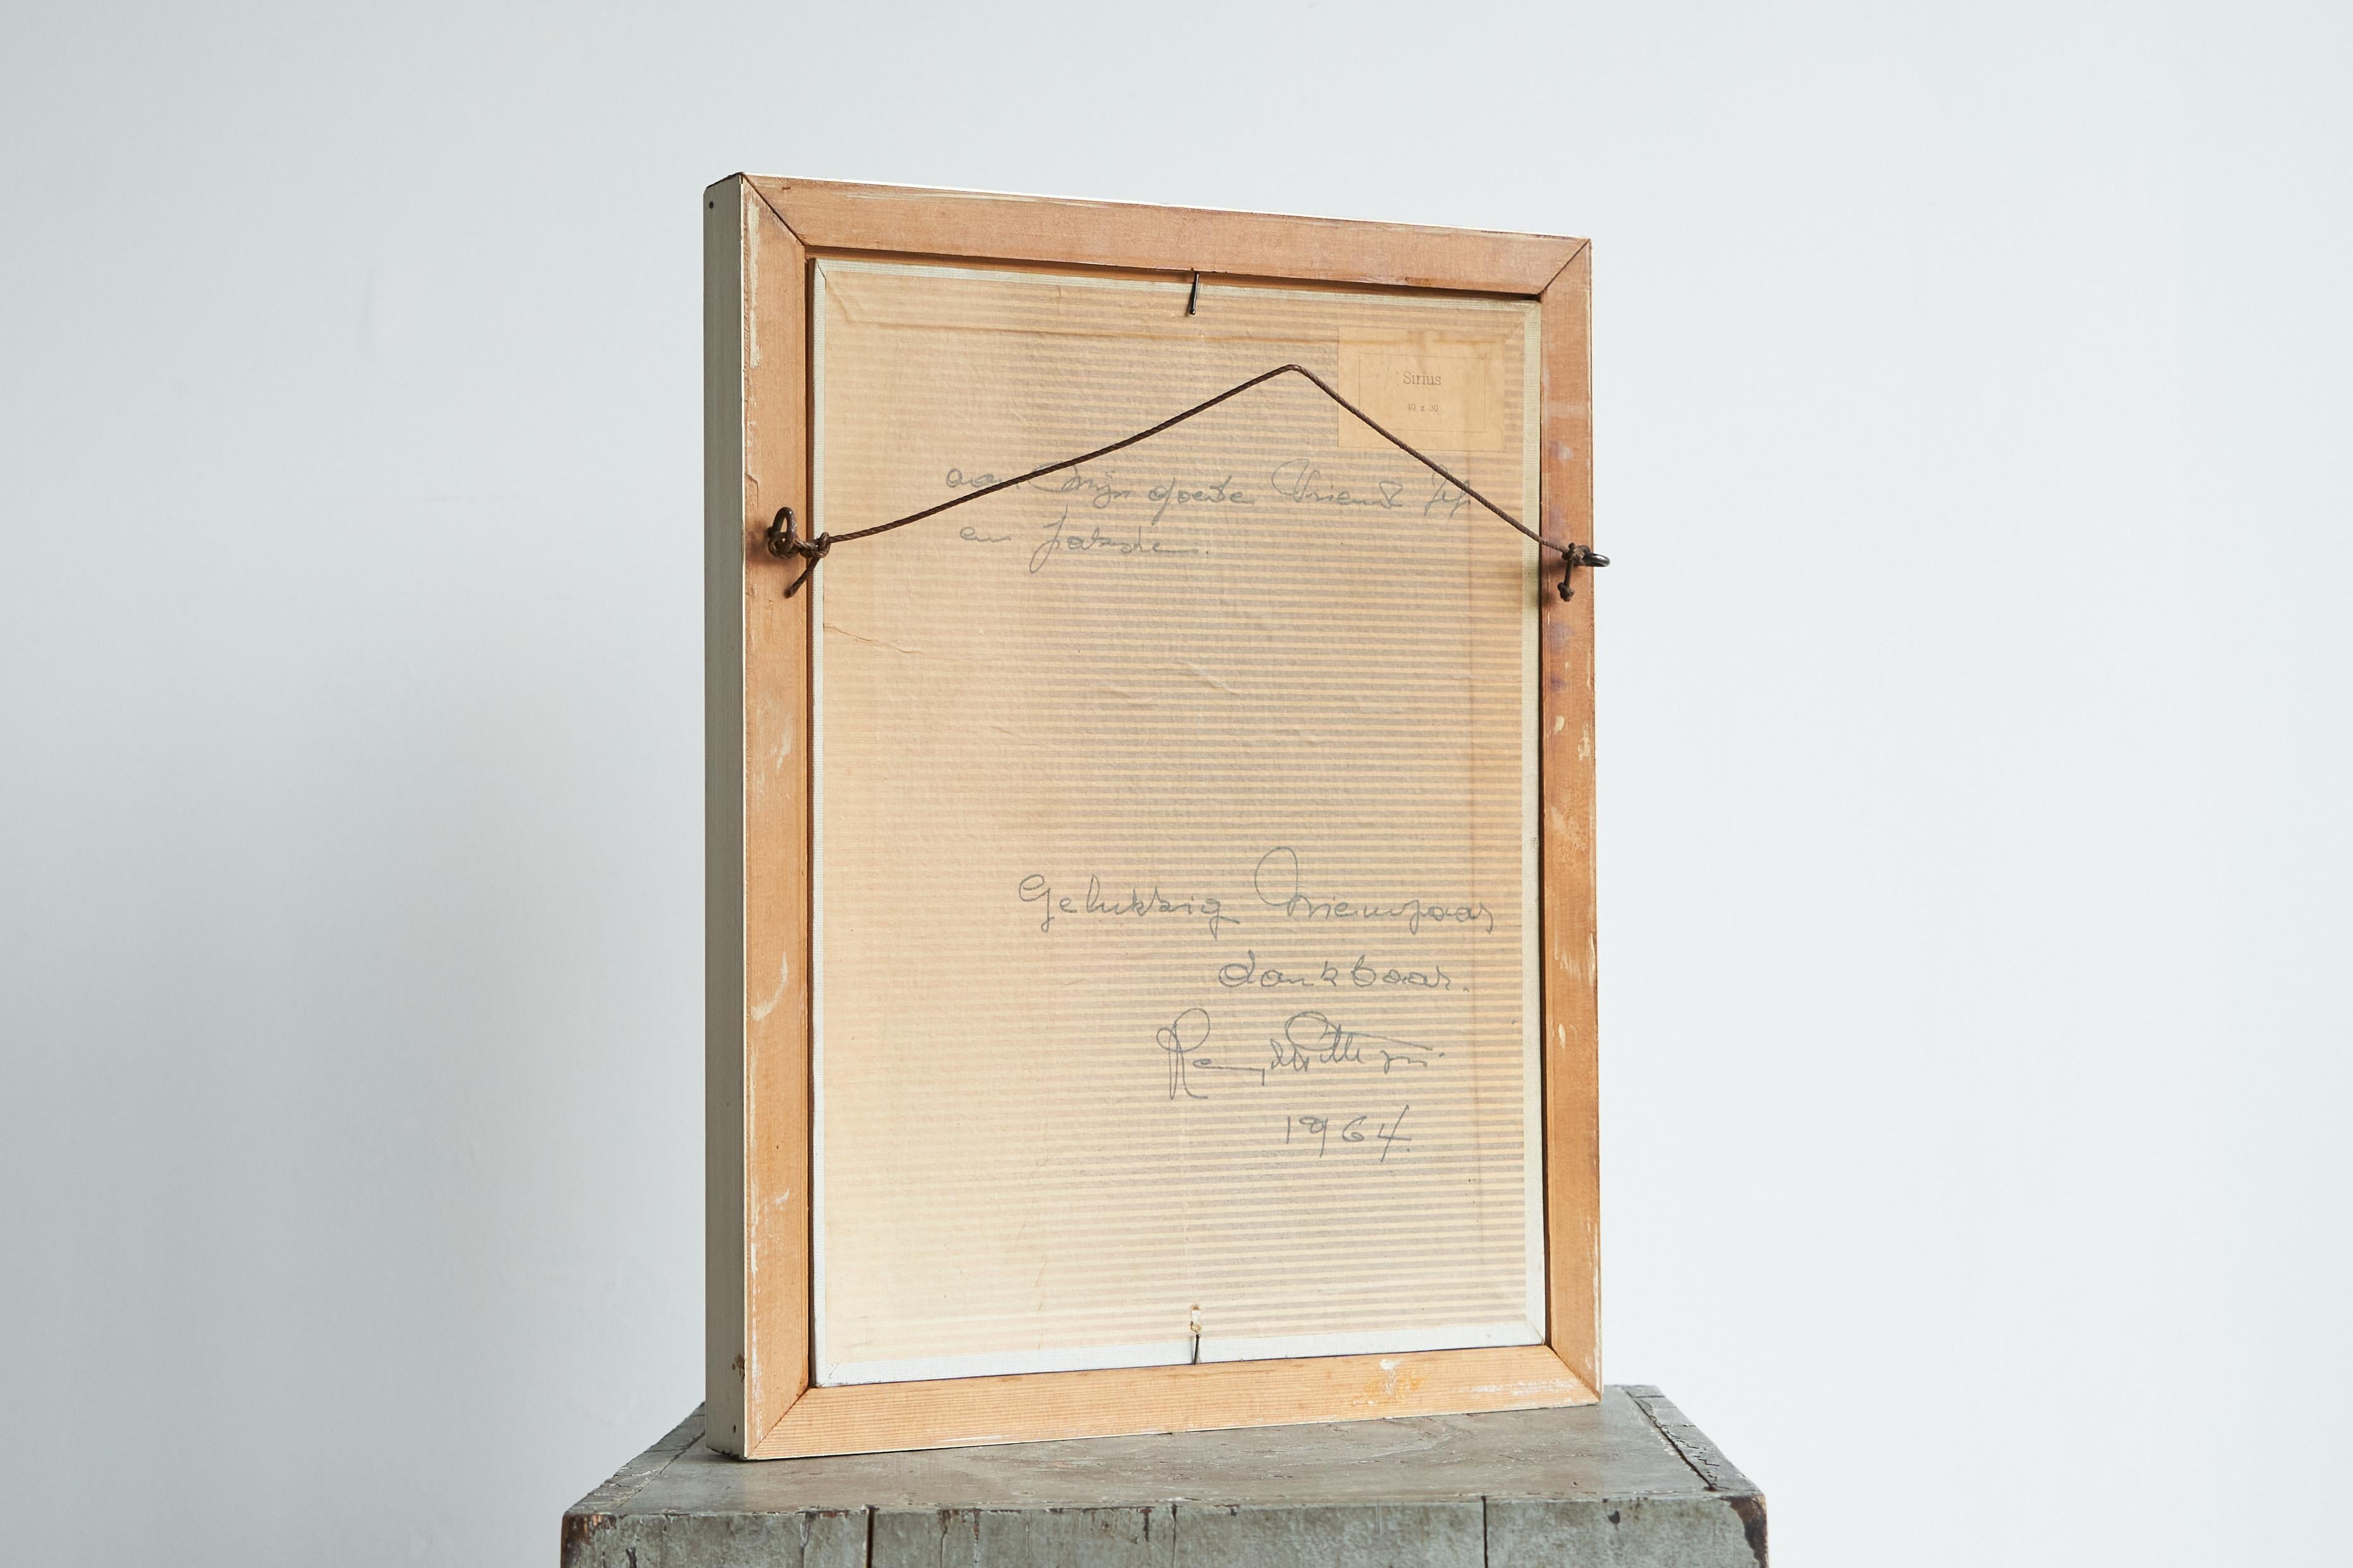 Sirius
40 x 30
aan Mijn goede Vriend Jef
en
Gelukkig Nieuwjaar
dankbaar.
1964.